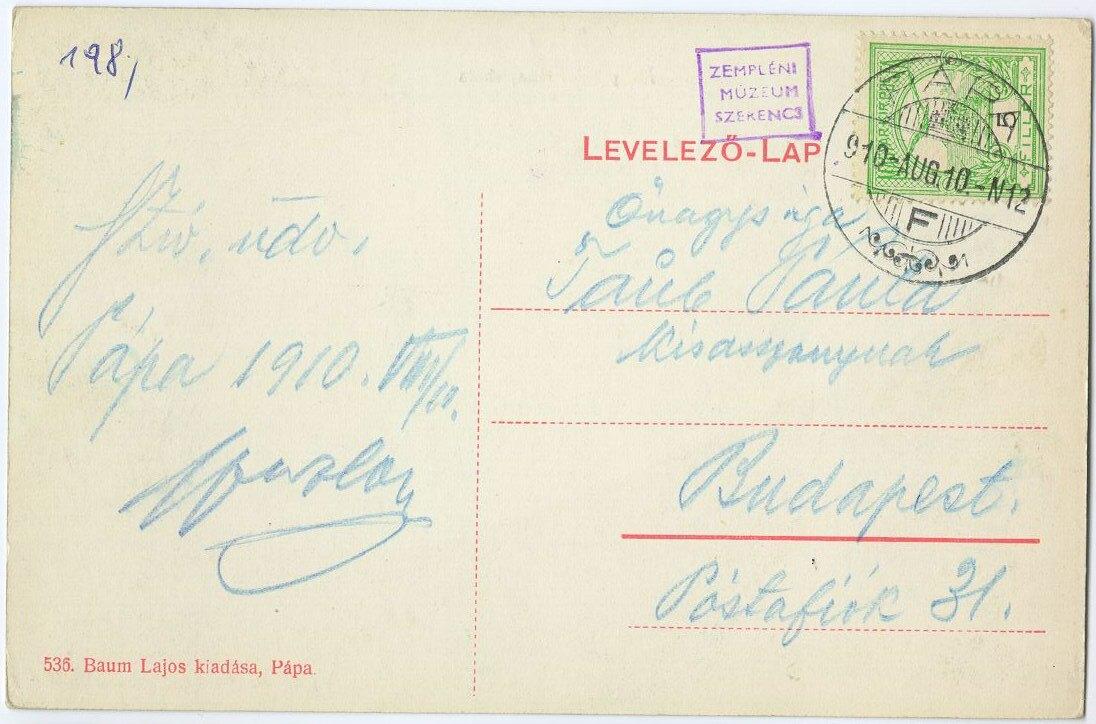 198,
ZEMPLÉNI
MÚZEUM
SZERENCS
LEVELEZŐ-LAP
5
FILLÉR
910-AUG.10.-N12
F
Szív. üdv.
Pápa 1910. VIII/10.
Őnagysága
Taub Paula
kisasszonynak
Budapest.
Póstafiók 31.
536. Baum Lajos kiadása, Pápa.